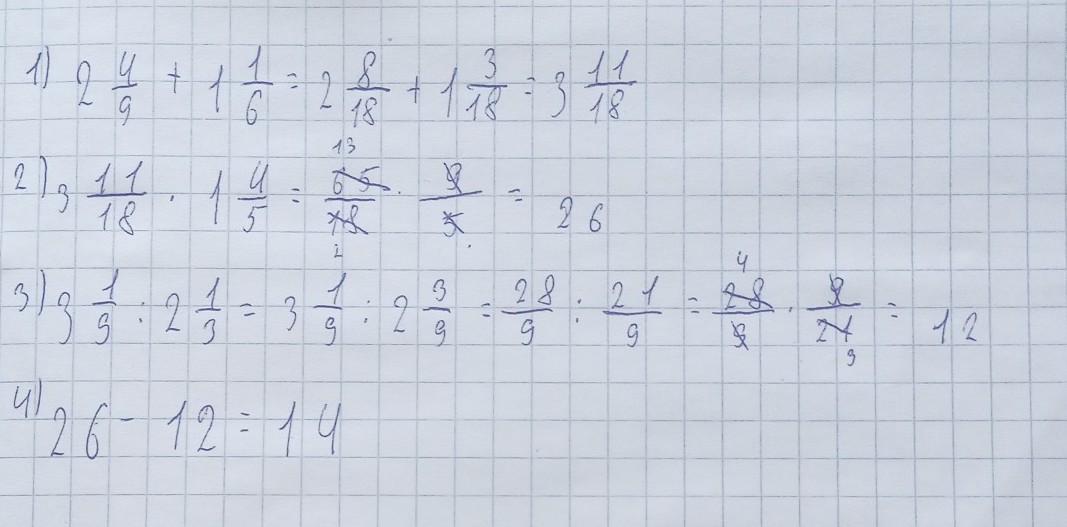 1) 2 4/9 + 1 1/6 = 2 8/18 + 1 3/18 = 3 11/18
2) 3 11/18 · 1 4/5 = 65/18 · 9/5 = 26 13 2
3) 3 1/9 : 2 1/3 = 3 1/9 : 2 3/9 = 28/9 : 21/9 = 28/9 · 9/21 = 12 4 3
4) 26 - 12 = 14